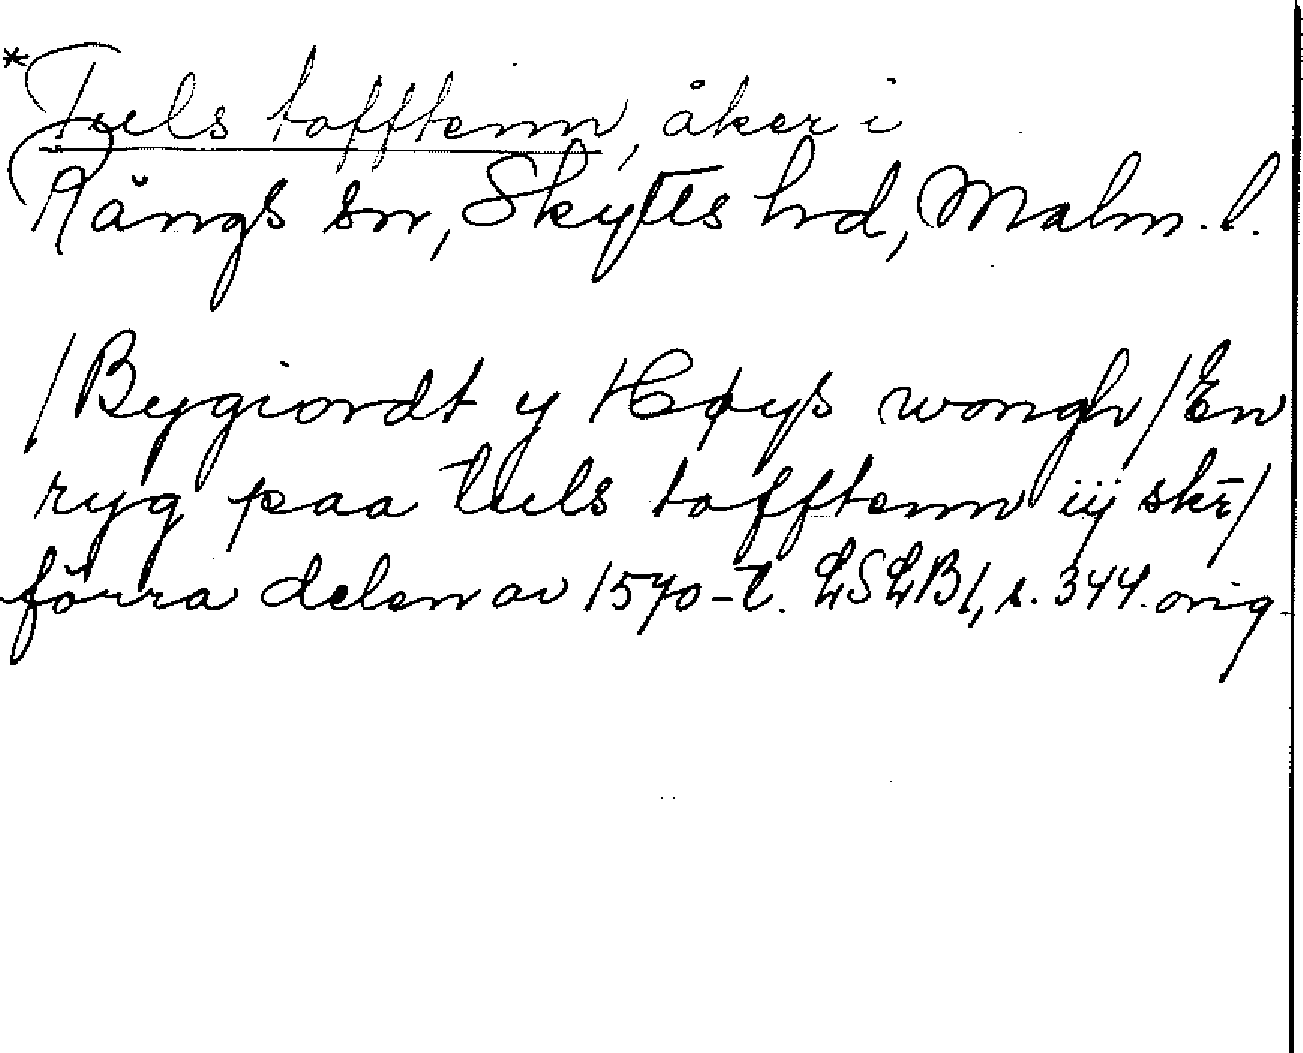 *Tuls tofftenn, åker i
Rångs sn, Skytts hd, Malm. l.
/Bygiordt y Høys wongh/En
ryg paa tuls tofftenn iij skē/
förra delen av 1570-t. LSLB1, s. 344. orig.